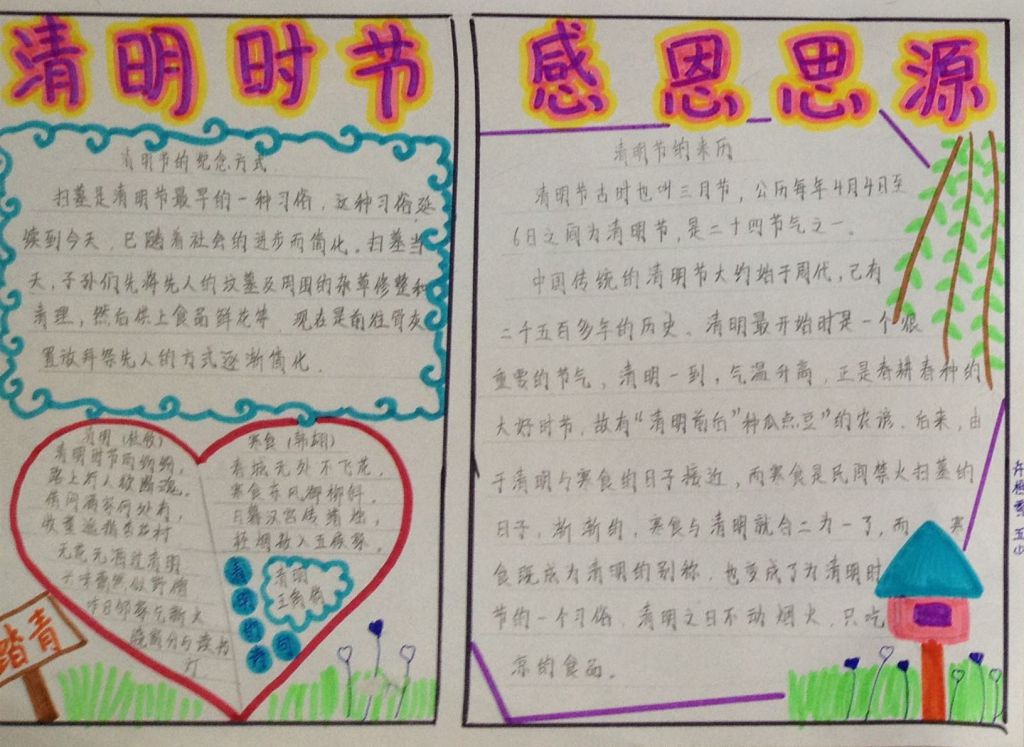 清明时节
清明节的纪念方式
扫墓是清明节最早的一种习俗，这种习俗延
续到今天，已随着社会的进步而简化。扫墓当
天，子孙们先将先人的坟墓及周围的杂草修整和
清理，然后供上食品鲜花等，现在是前往骨灰
置放拜祭先人的方式逐渐简化．
清明（杜牧）
清明时节雨纷纷，
路上行人欲断魂。
借问酒家何处有，
牧童遥指杏花村
无花无酒过清明
兴味萧然似野僧
昨日邻家乞新火
晓窗分与读书
灯
寒食（韩翃）
春城无处不飞花，
寒食东风御柳斜．
日暮汉宫传蜡烛，
轻烟散入五侯家．
清明
王禹偁
春
的
踏青
感恩思源
清明节的来历
清明节古时也叫三月节，公历每年4月4日至
6日之间为清明节，是二十四节气之一。
中国传统的清明节大约始于周代，已有
二千五百多年的历史、清明最开始时是一个很
重要的节气，清明一到，气温升高，正是春耕春种的
大好时节，故有“清明前后”种瓜点豆”的农谚．后来，由
于清明与寒食的日子接近，而寒食是民间禁火扫墓的
日子，渐渐的，寒食与清明就合二为一了，而寒
食既成为清明的别称，也变成了为清明时
节的一个习俗．清明之日不动烟火，只吃
凉的食品。